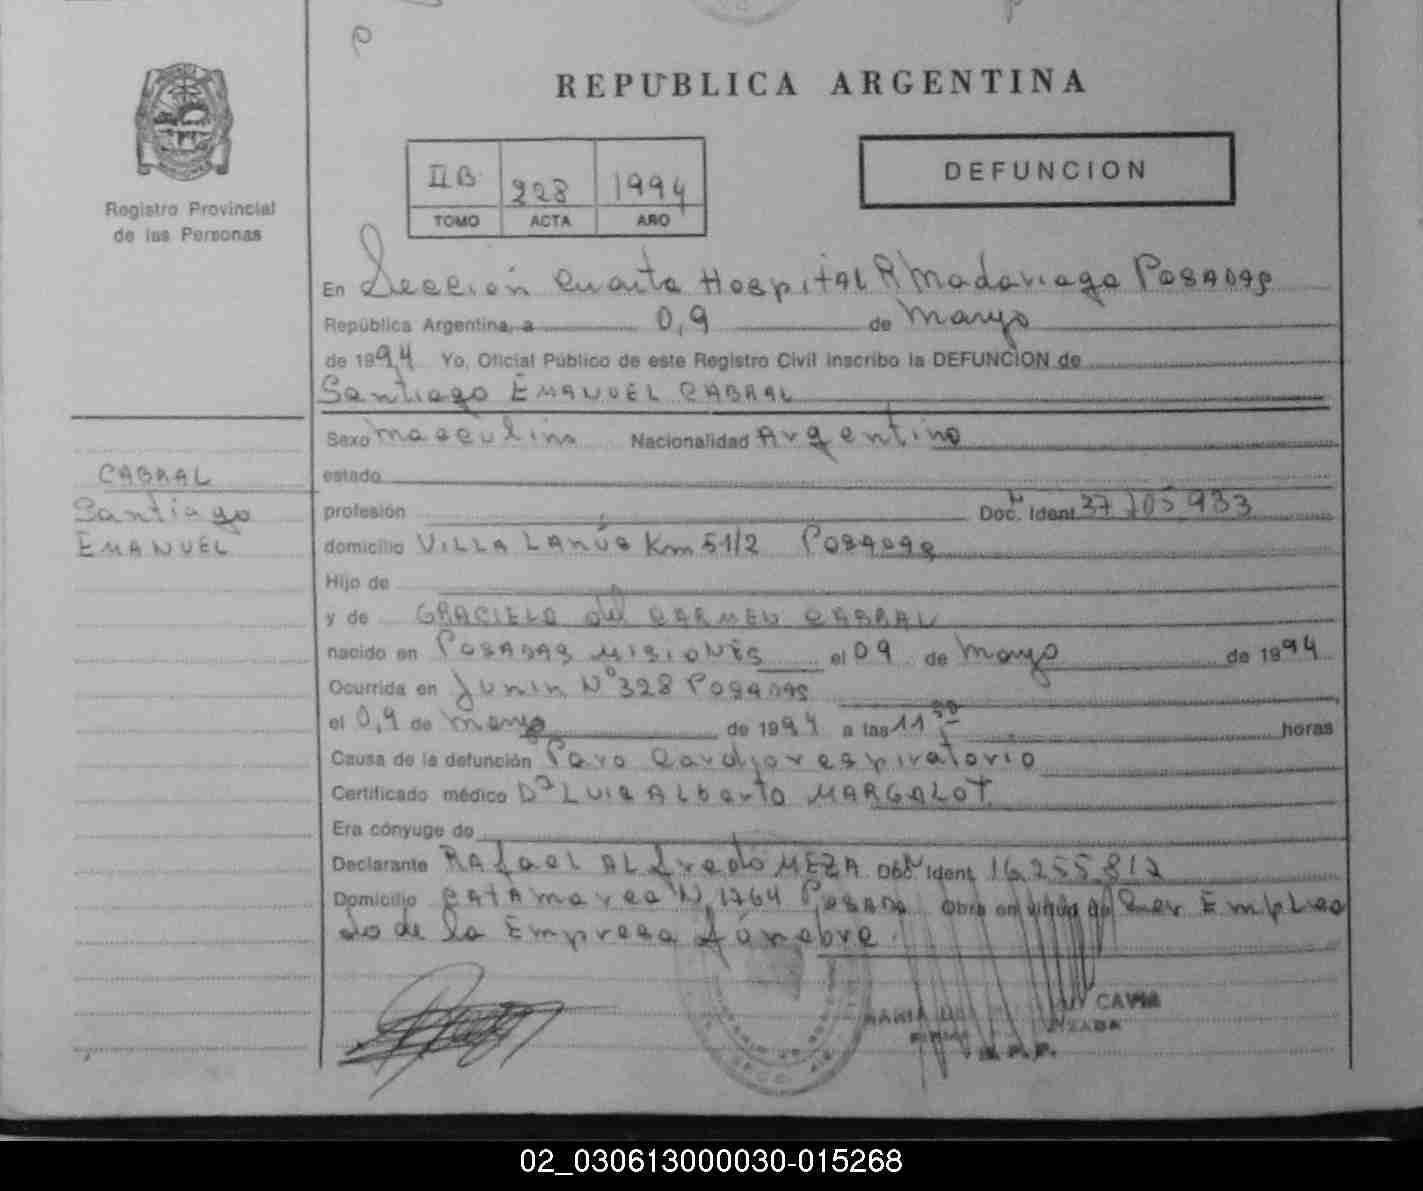 REPUBLICA ARGENTINA
Registro Provincial
de las Personas
II B 228 1994
TOMO ACTA AÑO
DEFUNCION
En Sección Cuarta Hospital R Madariaga Posadas
República Argentina, a 0,9 de Mayo
de 1994 Yo, Oficial Público de este Registro Civil inscribo la DEFUNCION de
Santiago EMANUEL CABRAL
CABRAL
Santiago
EMANUEL
Sexo masculino Nacionalidad Argentino
estado
profesión Doc. Ident 37 705 933
domicilio VILLA LANÚS Km 51/2 Posadas
Hijo de
y de GRACIELA del CARMEN CABRAL
nacido en POSADAS MISIONES el 09 de Mayo de 1994
Ocurrida en Junin Nº 328 Posadas
el 0,9 de Mayo de 1994 a las 11 horas
Causa de la defunción Paro Cardiorespiratorio
Certificado médico Dr LUIS ALberto MARGALOT
Era cónyuge de
Declarante RAfael ALfredo MEZA Ident 16 255 812
Domicilio CATAmarca N 1764 Posadas Obra en virtud de Ser Emplea
do de la Empresa fúnebre
CAVIA
02_030613000030-015268